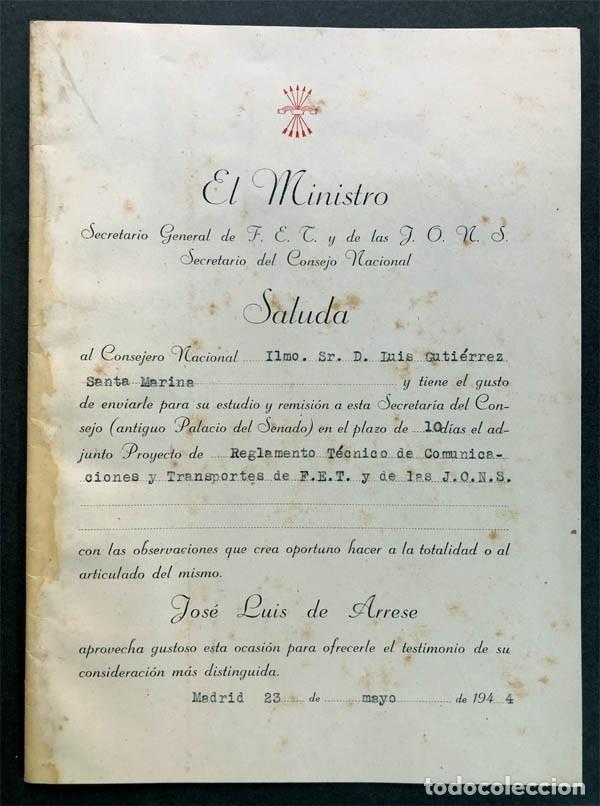 El Ministro
Secretario General de F. E. T. y de las J. O. N. S.
Secretario del Consejo Nacional
Saluda
al Consejero Nacional Ilmo. Sr. D. Luis Gutiérrez
Santa Marina y tiene el gusto
de enviarle para su estudio y remisión a esta Secretaría del Con-
sejo (antiguo Palacio del Senado) en el plazo de 10 días el ad-
junto Proyecto de Reglamento Técnico de Comunica-
ciones y Transportes de F.E.T. y de las J.O.N.S.
con las observaciones que crea oportuno hacer a la totalidad o al
articulado del mismo.
José Luis de Arrese
aprovecha gustoso esta ocasión para ofrecerle el testimonio de su
consideración más distinguida.
Madrid 23 de mayo de 1944
todocoleccion